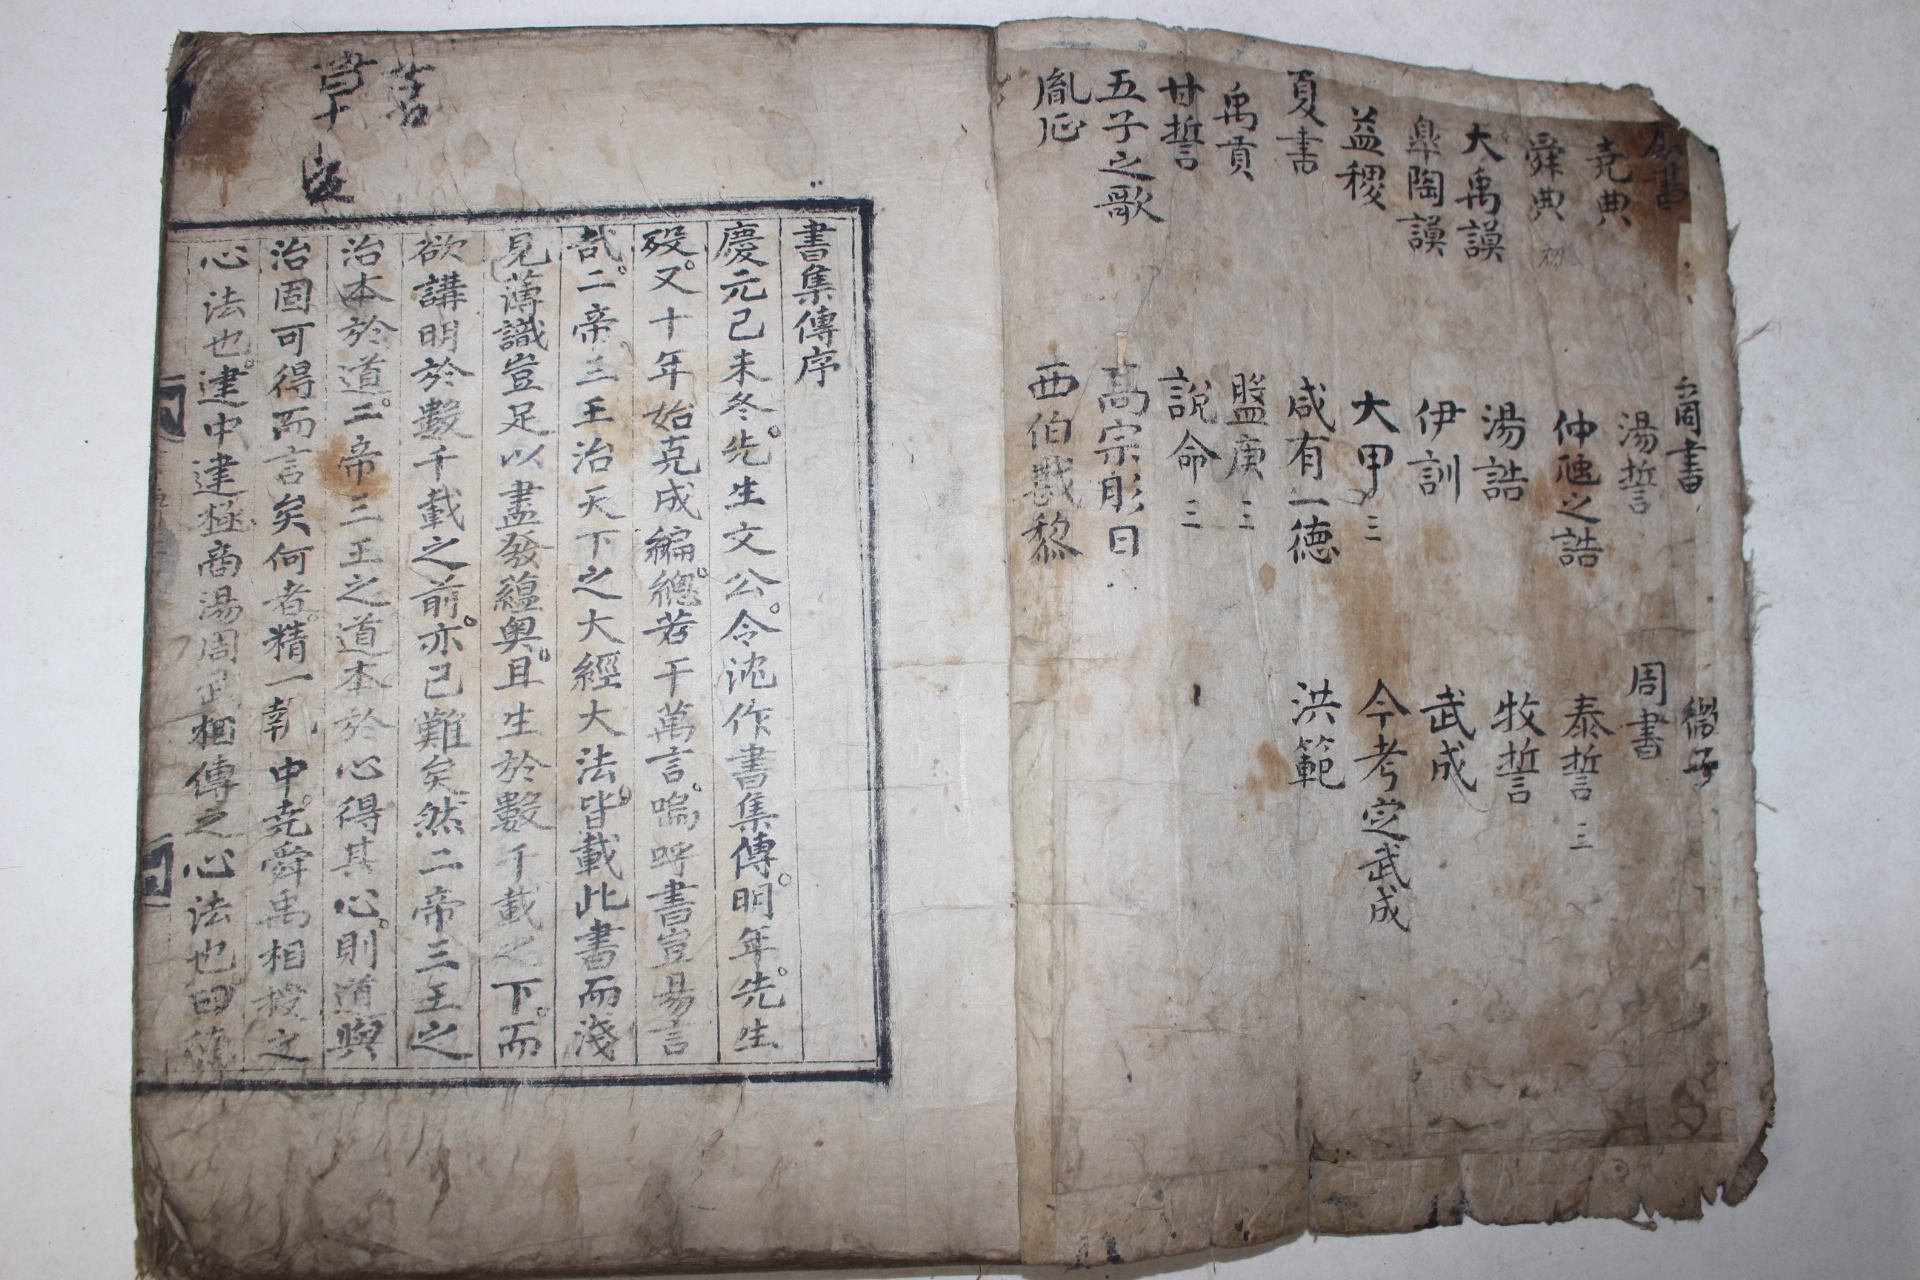 虞書
堯典
舜典
大禹謨
皐陶謨
益稷
夏書
禹貢
甘誓
五子之歌
胤征
商書
湯誓
仲虺之誥
湯誥
伊訓
大甲三
咸有一德
盤庚三
說命三
高宗肜日
西伯戡黎
微子
周書
泰誓三
牧誓
武成
今考定武成
洪範
書集傳序
慶元己未冬。先生文公。令沈作書集傳。明年。先生
歿。又十年始克成編。總若干萬言。嗚呼書豈易言
哉。二帝三王治天下之大經大法。皆載此書而淺
見薄識豈足以盡發蘊奧。且生於數千載之下。而
欲講明於數千載之前。亦已難矣然二帝三王之
治本於道。二帝三王之道本於心得其心。則道與
治固可得而言矣何者。精一執中。堯舜禹相授之
心法也。建中建極商湯周武相傳之心法也曰德